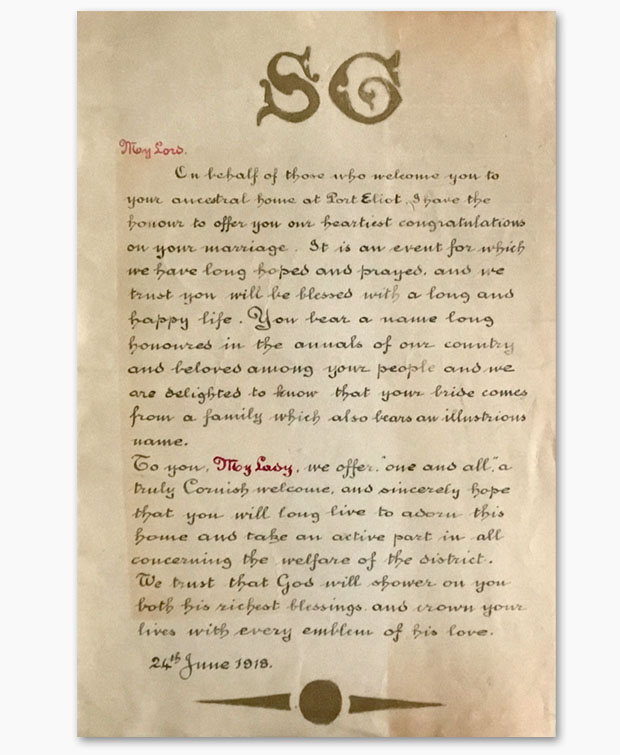 SG
My Lord.
On behalf of those who welcome you to
your ancestral home at Port Eliot, I have the
honour to offer you our heartiest congratulations
on your marriage. It is an event for which
we have long hoped and prayed, and we
trust you will be blessed with a long and
happy life. You bear a name long
honoured in the annals of our country
and beloved among your people and we
are delighted to know that your bride comes
from a family which also bears an illustrious
name.
To you, My Lady, we offer, "one and all", a
truly Cornish welcome, and sincerely hope
that you will long live to adorn this
home and take an active part in all
concerning the welfare of the district.
We trust that God will shower on you
both his richest blessings and crown your
lives with every emblem of his love.
24th June 1918.